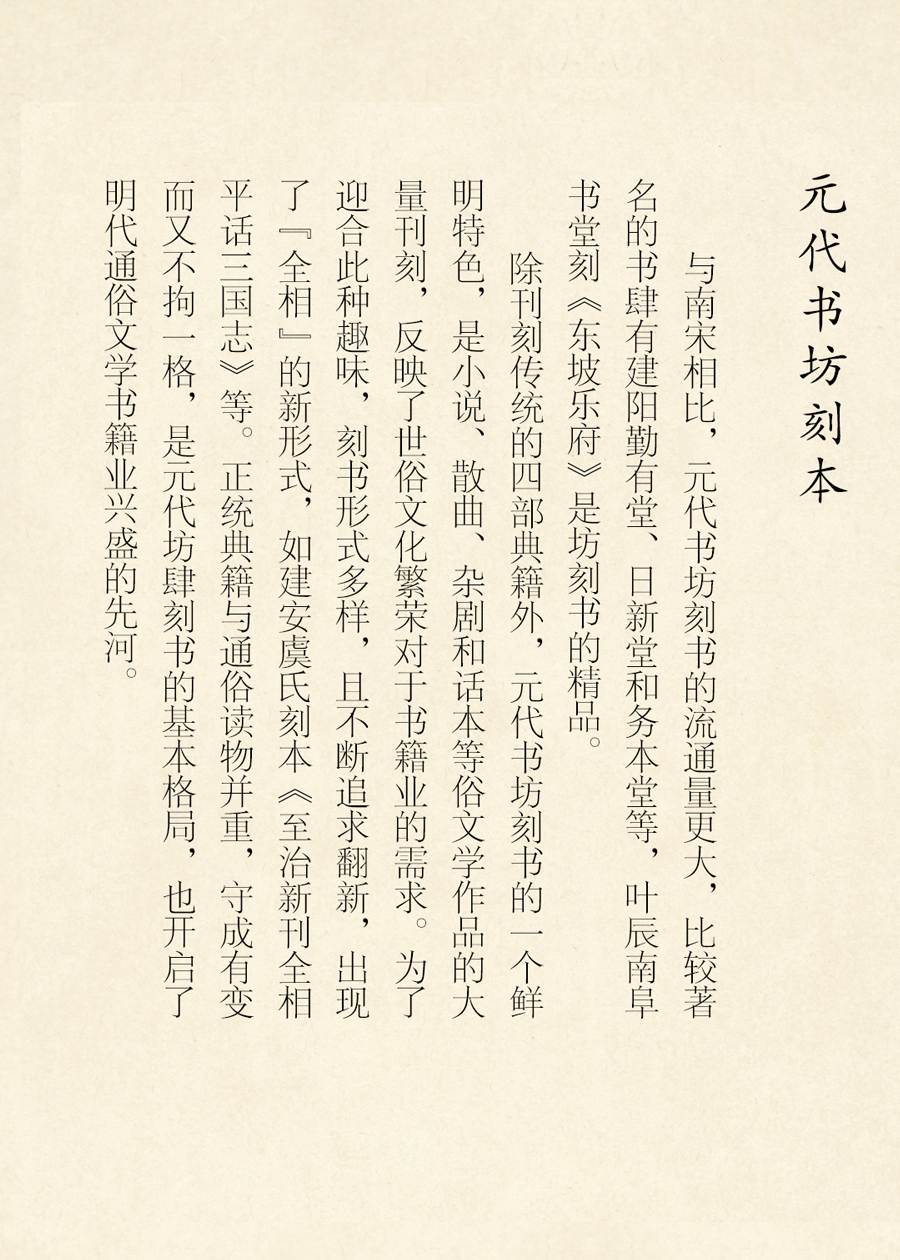 元代书坊刻本
与南宋相比，元代书坊刻书的流通量更大，比较著
名的书肆有建阳勤有堂、日新堂和务本堂等，叶辰南阜
书堂刻《东坡乐府》是坊刻书的精品。
除刊刻传统的四部典籍外，元代书坊刻书的一个鲜
明特色，是小说、散曲、杂剧和话本等俗文学作品的大
量刊刻，反映了世俗文化繁荣对于书籍业的需求。为了
迎合此种趣味，刻书形式多样，且不断追求翻新，出现
了『全相』的新形式，如建安虞氏刻本《至治新刊全相
平话三国志》等。正统典籍与通俗读物并重，守成有变
而又不拘一格，是元代坊肆刻书的基本格局，也开启了
明代通俗文学书籍业兴盛的先河。